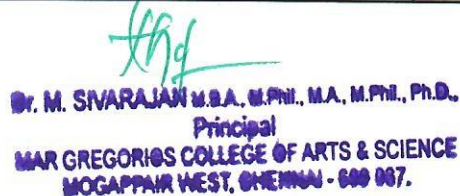 Dr. M. SIVARAJAN M.B.A., M.Phil., M.A., M.Phil., Ph.D.,
Principal
MAR GREGORIOS COLLEGE OF ARTS & SCIENCE
MOGAPPAIR WEST, CHENNAI - 600 037.